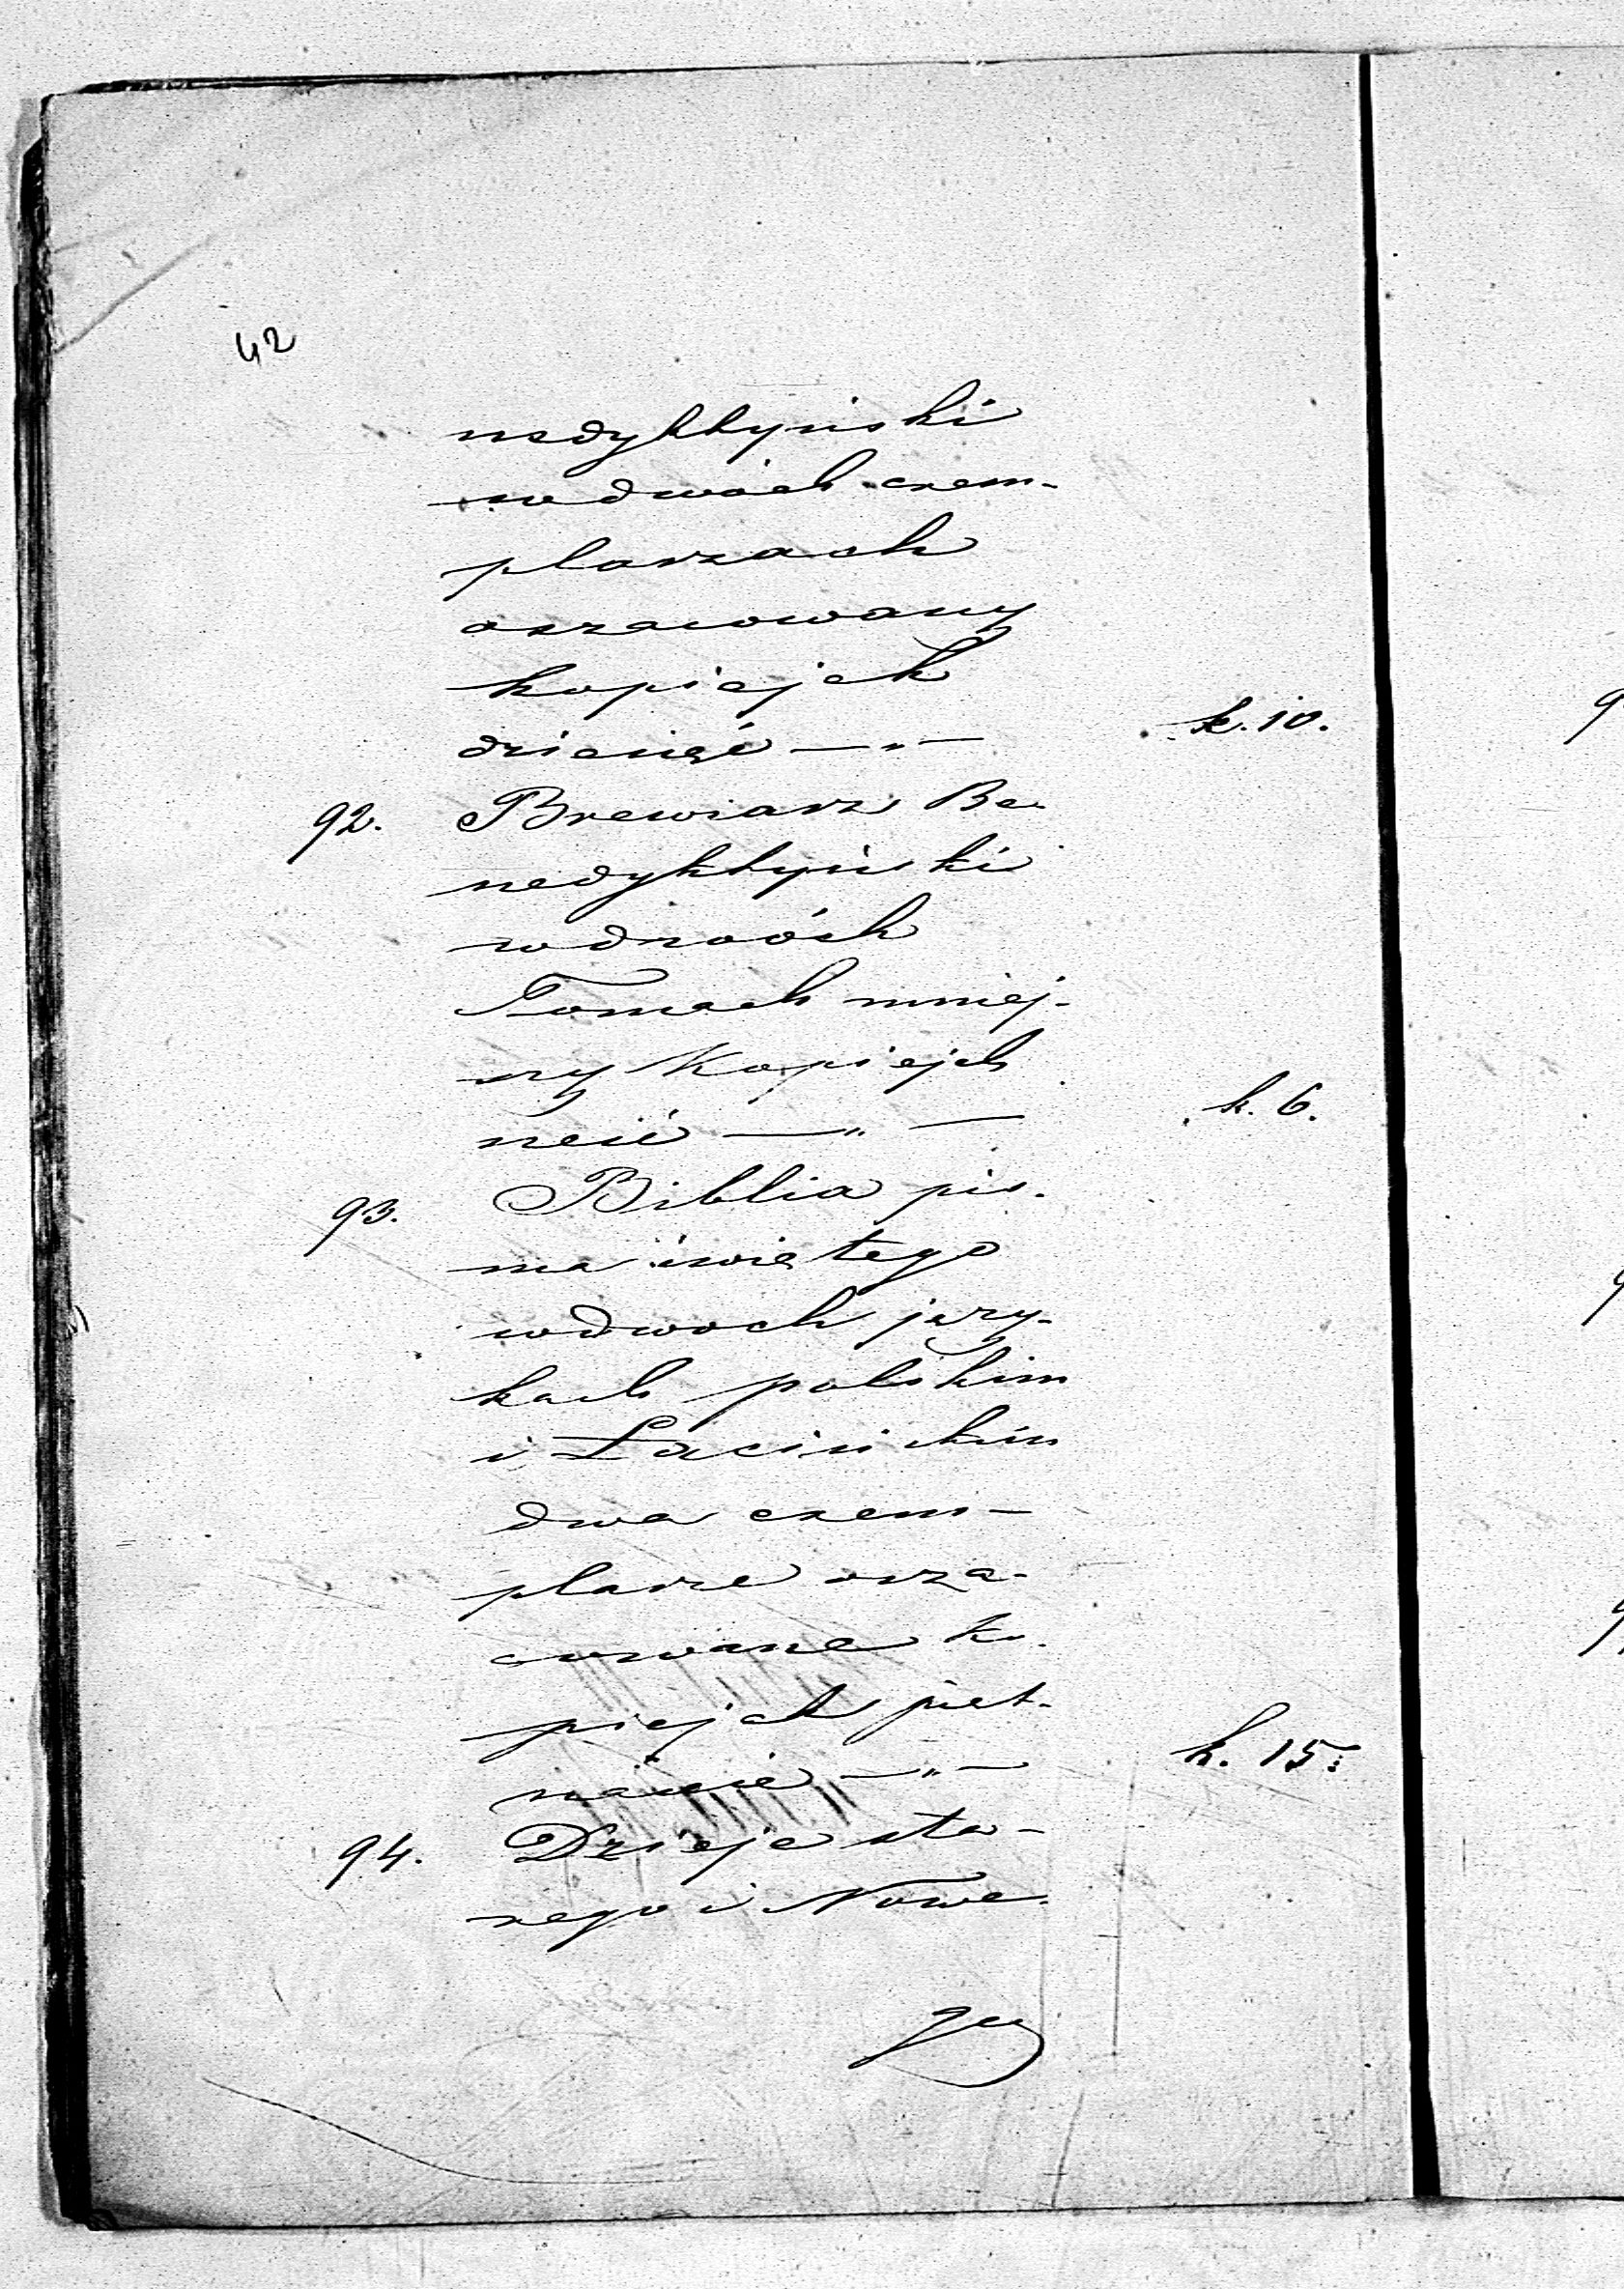 42
nedyktyński
w dwóch exem-
plarzach
oszacowany
kopiejek
dziesięć — „ — k. 10.
92. Brewiarz Be-
nedyktyński
w dwóch
Tomach mniej-
szy Kopiejek
sześć — „ — k. 6.
93. Biblia pis-
ma świętego
w dwoch języ-
kach polskim
i Łacińskim
dwa exem-
plarze osza-
cowane ko-
piejek pięt-
naście — „ — k. 15.
94. Dzieje sta-
rego i Nowe-